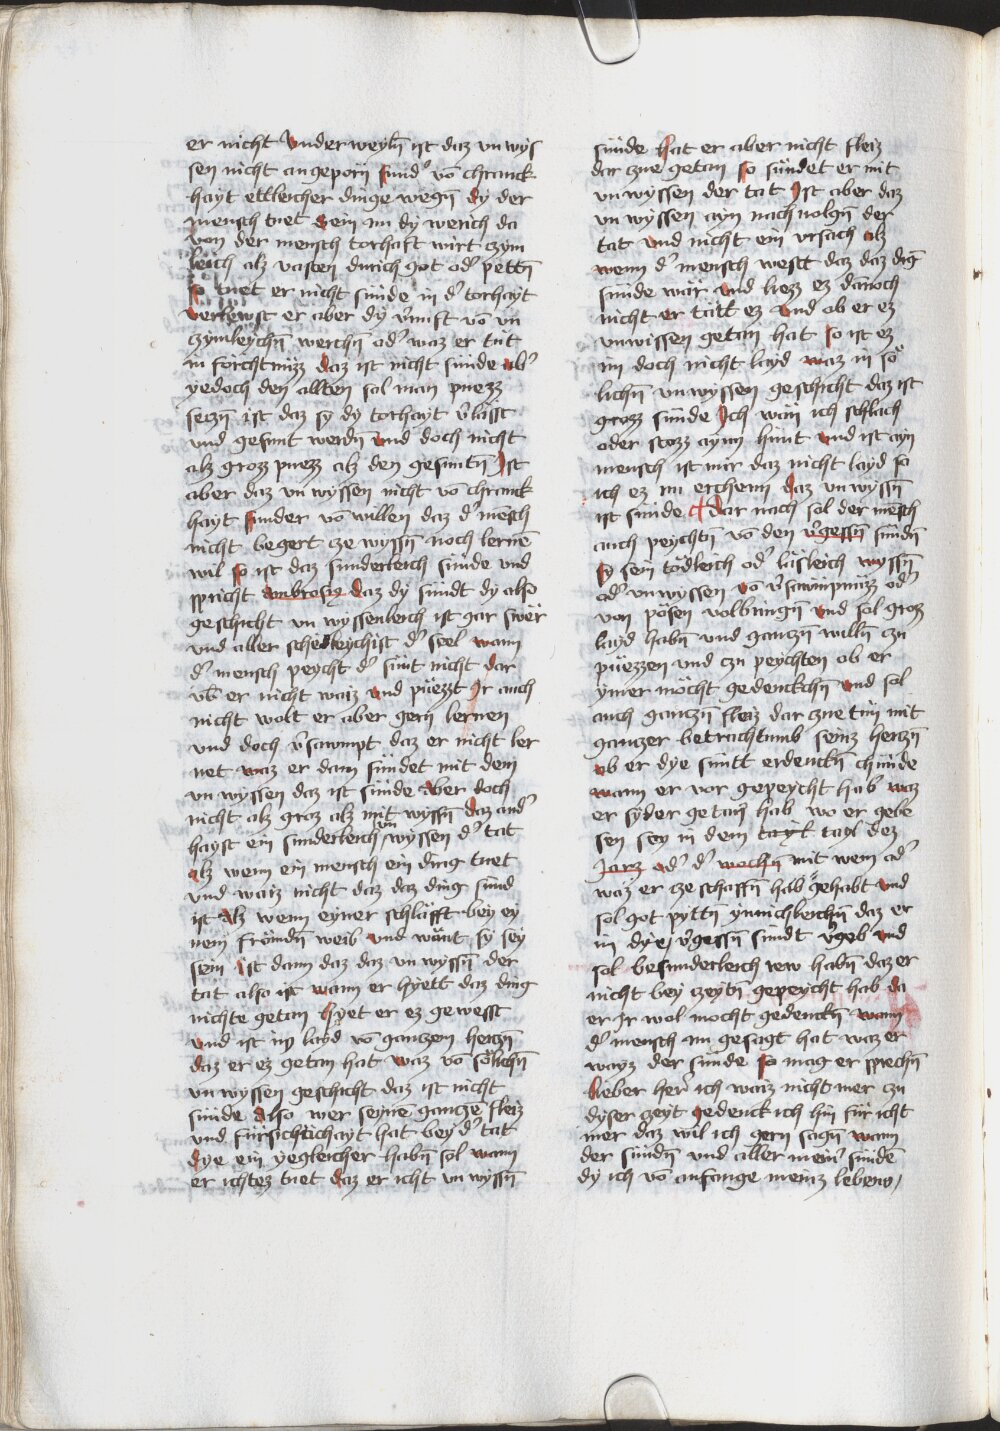 er nicht Vnderweyln̄ ist daz vnwys
sen nicht angeporn̄ sund' vō chranck
hayt ettleicher dinge wegn̄ dy der
mensch tuet Sein nu dy werich da
von der mensch torhaft wirt czym
leich alz vasten durich got od' pettn̄
so tuet er nicht sünde in d' torhayt
verlewst er aber dy v̄nuft vō vn
czymleychn̄ werchn̄ od' waz er tut
in forchtnüzz daz ist nicht sünde ab'
yedoch den allten sol man puezz
seczn̄ ist daz sy dy torhayt v̄lässt
vnd gesunt werdn̄ vnd doch nicht
alz grozz puezz alz den gesuntn̄ Ist
aber daz vnwyssen nicht vō chranck
hayt sunder vō willen daz d' mēsch
nicht begert cze wyssn̄ noch lernē
wil so ist daz sunderleich sünde vnd
spricht Ambrosiz daz dy sündt dy also
geschicht vnwyssenleich ist gar swär
vnd aller schedleychist d' seel wann
d' mensch peycht d' sünt nicht dar
vb̄ er nicht waiz vnd püezzt Ir auch
nicht wolt er aber gern̄ lernen
vnd doch v̄sawmpt daz er nicht ler
net waz er dann sündet mit dem
vnwyssen daz ist sünde Aber doch
nicht alz groz alz mit wyssn̄ daz and'
hayst ein sunderleich vnwyssen d' tat
alz wenn ein mensch ein ding tuet
vnd waiz nicht daz daz ding sünd
ist Alz wenn eyner schläfft bey ey
nem frömdn̄ weib vnd wänt sy sey
sein ist dann daz daz vnwyssn̄ der
tat also ist wann er hyett daz ding
nichte getan hyet er ez gewesst
vnd ist im layd vō ganczem herczn̄
daz er ez getan hat waz vō sölichn̄
vnwyssen geschicht daz ist nicht
sünde also wer seynē gancze fleiz
vnd fürsichtichayt hat bey d' tat
dye ein yegleicher habn̄ sol wann
er ichtez tuet daz er icht vnwyssn̄
sünde hat er aber nicht fleiz
dar czue getan so sündet er mit
vnwyssen der tat Ist aber daz
vnwyssen ayn nachuolgn̄ der
tat vnd nicht ein vrsach alz
wenn d' mensch wesst daz daz dīg
sünde wär vnd liezz ez dānoch
nicht er tätt ez vnd ob er ez
vnwissen getan hat so ist ez
im doch nicht layd waz in sö
lichn̄ vnwyssen geschicht daz ist
grozz sünde Ich wän ich schlach
oder stozz aynn hunt vnd ist ayn
mensch ist mir daz nicht layd so
ich ez nu erchenn daz vnwyssn̄
ist sünde Dar nach sol der mēsch
auch peychtn̄ vō den v̄gessn̄ sündn̄
sy sein tödleich od' läsleich wyssn̄
od' vnwyssen vō v̄sawmpnüzz od'
von pösen volbringn̄ vnd sol groz
layd habn̄ vnd ganczn̄ willn̄ czu
püezzen vnd czu peychten ob er
ymer möcht gedenckchn̄ vnd sol
auch ganczn̄ fleiz dar czue tun mit
ganczer betrachtumb seinz herczn̄
ob er dye süntt erdenckn̄ chünde
wann er vor gepeycht hab waz
er syder getan hab wo er gebe
sen sey in dem tayl dez
Jarz od' d' wochn̄ mit wem od'
waz er cze schaffn̄ hab gehabt vnd
sol got pyttn̄ ynnichleichn̄ daz er
im dye v̄gessn̄ sündt v̄geb vnd
sol besunderleich rew habn̄ daz er
nicht bey czeytn̄ gepeycht hab da
er Ir wol mocht gedenckn̄ wann
d' mensch nu gesagt hat waz er
wayz der sünde so mag er sprechn̄
Lieber her ich waiz nicht mer czu
dyser czeyt gedenck ich hin für icht
mer daz wil ich gern sagn̄ wann
der sündn̄ vnd aller mein' sündē
dy ich vō anfange meinz lebens